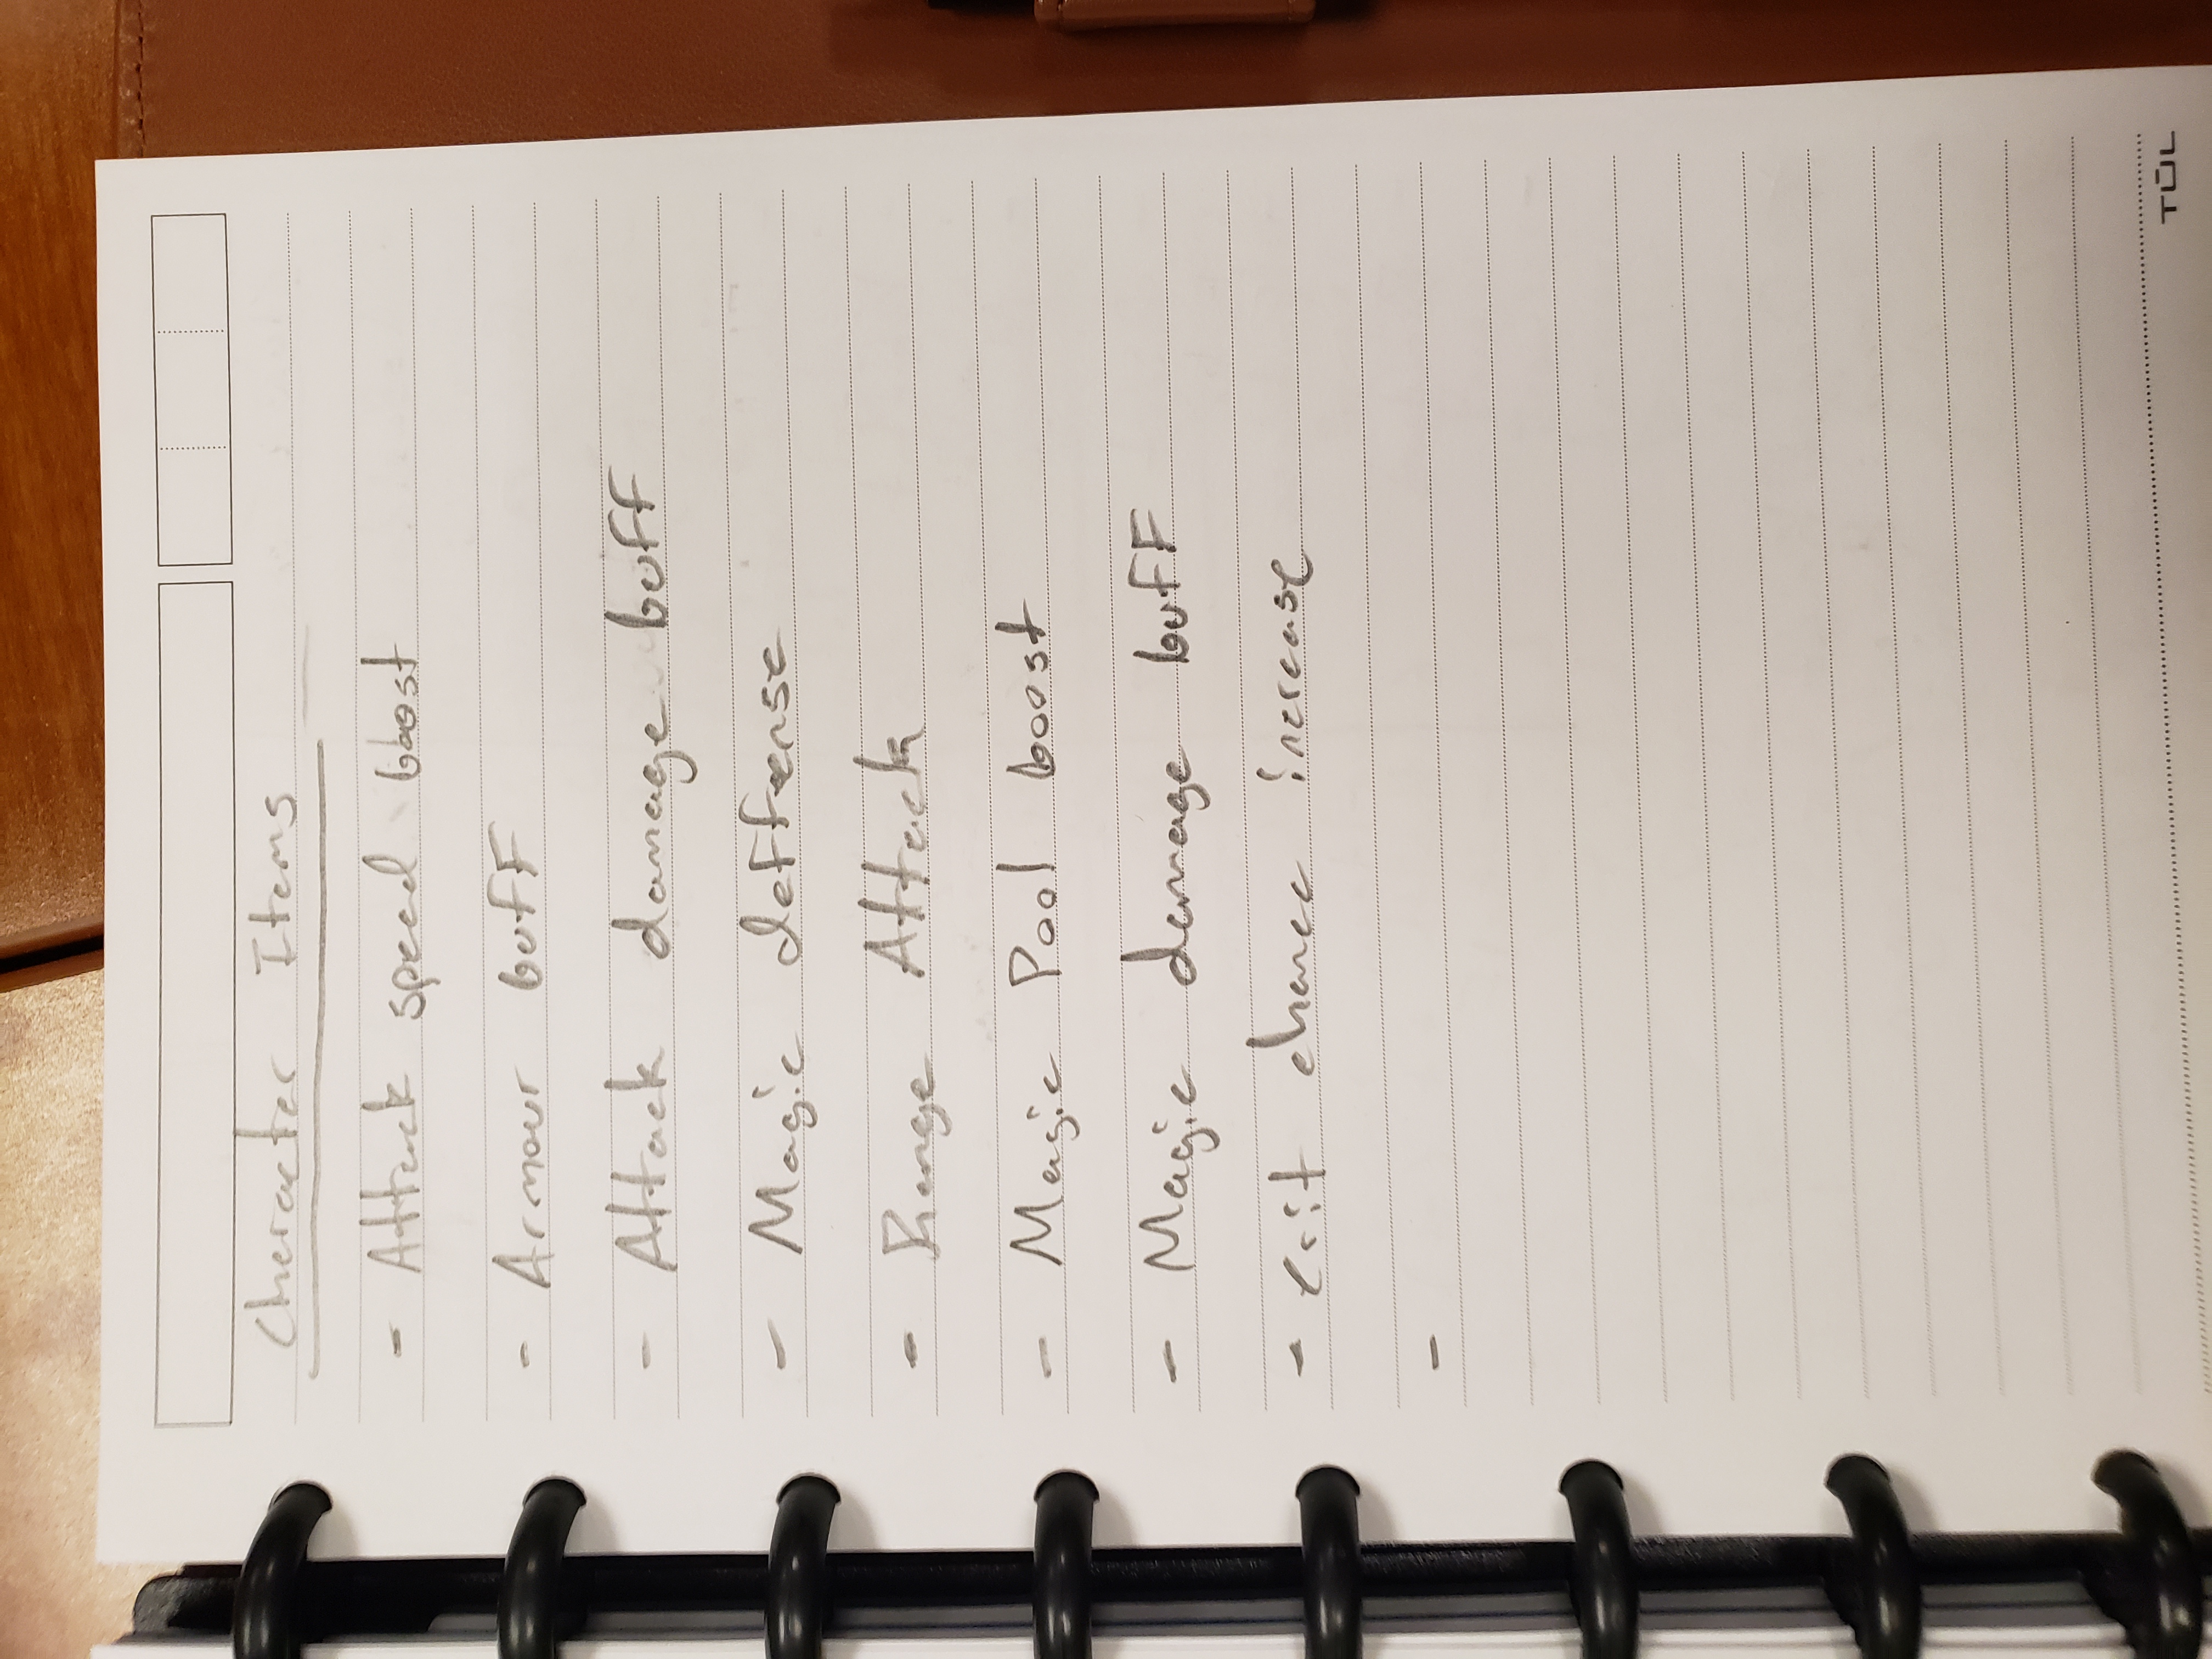 Character Items
- Attack speed boost
- Armour buff
- Attack damage buff
- Magic deffense
- Range Attack
- Magic Pool boost
- Magic damage buff
- crit chance increase
-
TŪL